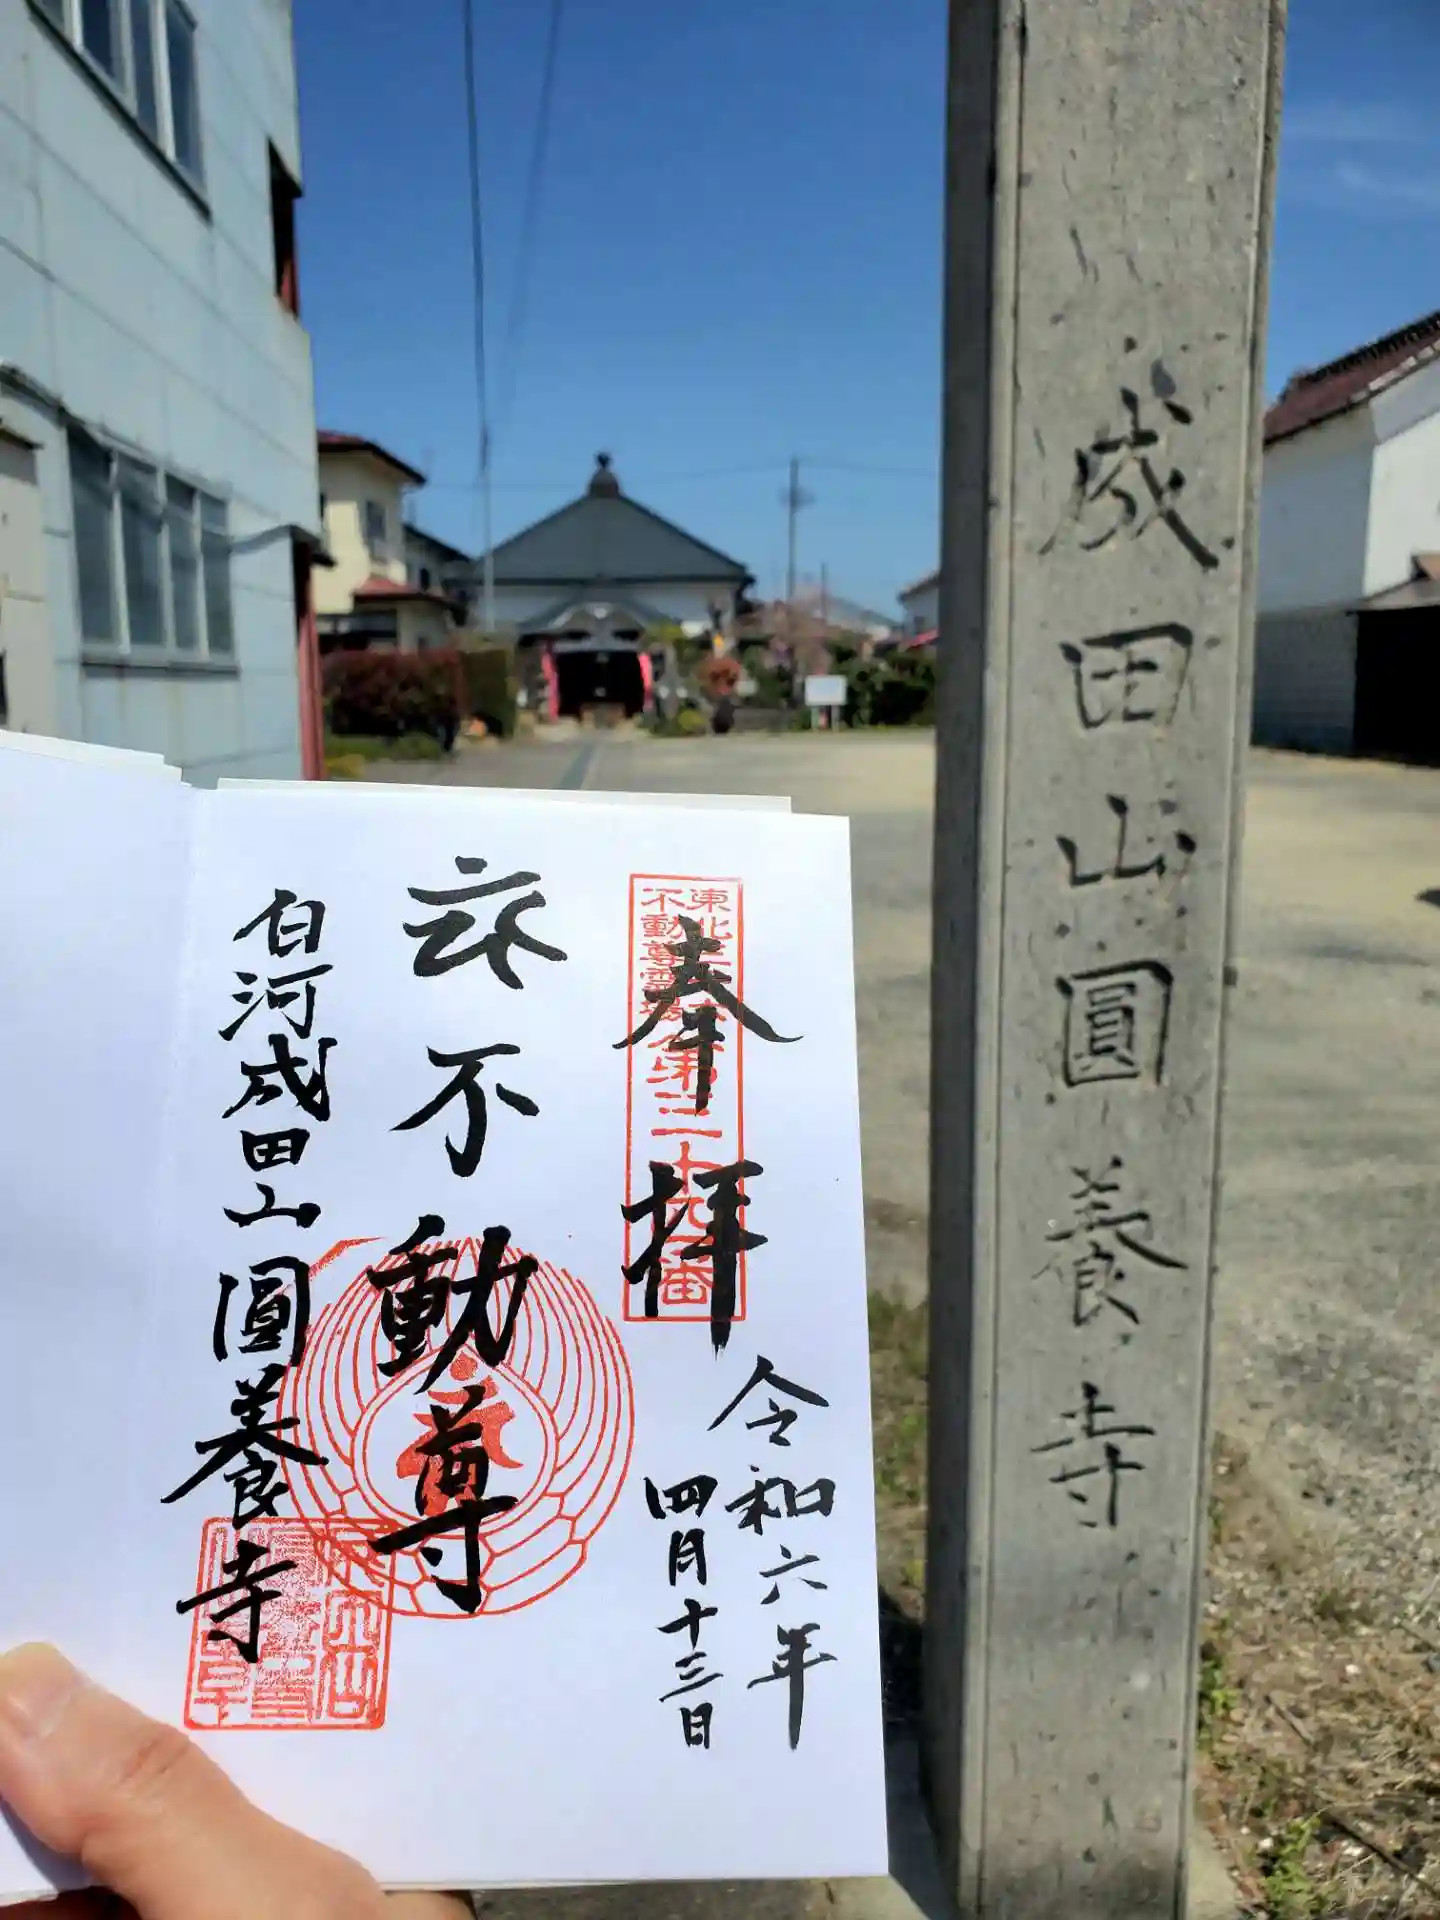 成田山圓養寺
奉拝
東北三十六
不動尊霊場
第三十四番
令和六年
四月十三日
不動尊
白河成田山圓養寺